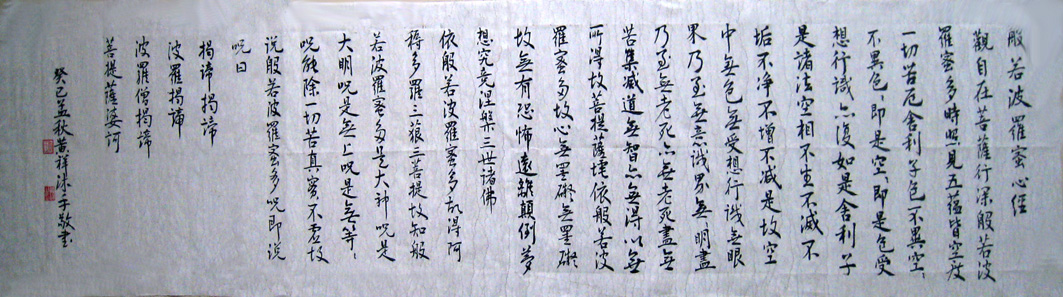 般若波羅蜜心经
觀自在菩薩行深般若波
羅蜜多時照見五蘊皆空度
一切苦厄舍利子色不異空々
不異色々即是空々即是色受
想行識亦復如是舍利子
是諸法空相不生不滅不
垢不净不增不减是故空
中無色無受想行識無眼
界乃至無意識界無明盡
乃至無老死亦無老死盡無
苦集滅道無智亦無得以無
所得故菩提薩埵依般若波
羅蜜多故心無罣礙無罣礙
故無有恐怖遠離顛倒夢
想究竟涅槃三世諸佛
依般若波羅蜜多故得阿
耨多羅三藐三菩提故知般
若波羅蜜多是大神呪是
大明呪是無上呪是無等々
呪能除一切苦真實不虚故
説般若波羅蜜多呪即説
呪曰
揭諦揭諦
波羅揭諦
波羅僧揭諦
菩提薩婆訶
癸巳孟秋黄祥洙手敬書